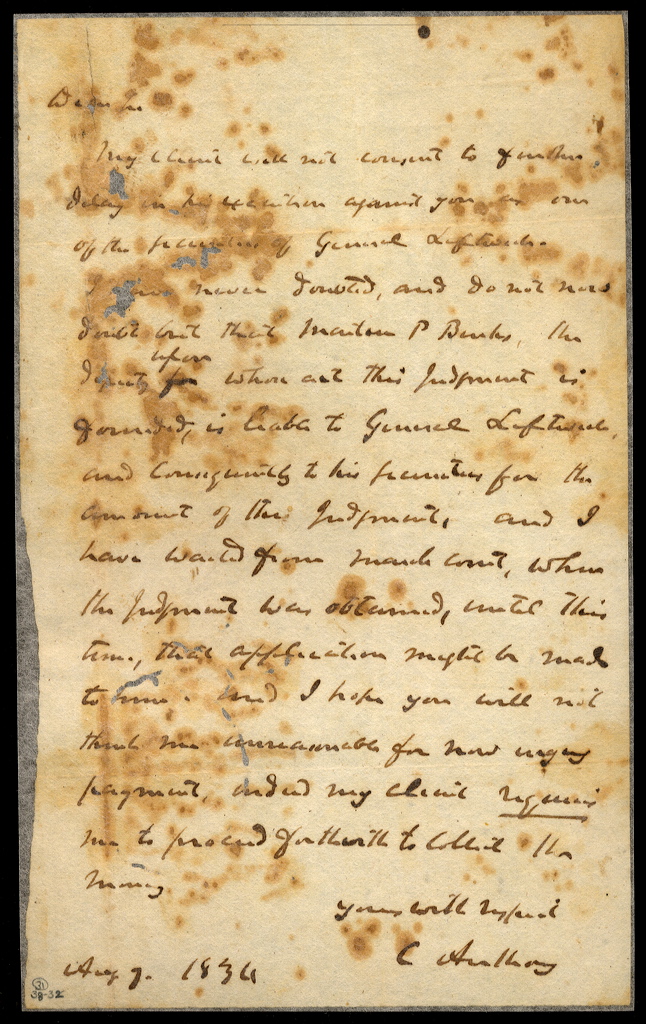 Dear Sir
My client will not consent to further
delay in his execution against you as one
of the securities of General Leftwich.
I have never doubted, and do not now
doubt but that Marten P Burks, the
upon
deputy for whose act this Judgment is
founded, is liable to General Leftwich,
and consequently to his securities for the
amount of this Judgment, and I
have waited from March court, when
the Judgment was obtained, until this
time, that application might be made
to him. And I hope you will not
think me unreasonable for now urging
payment, indeed my client requires
me to proceed forthwith to collect the
money
yours with respect
C Anthony
Aug 7. 1834
31
38-32